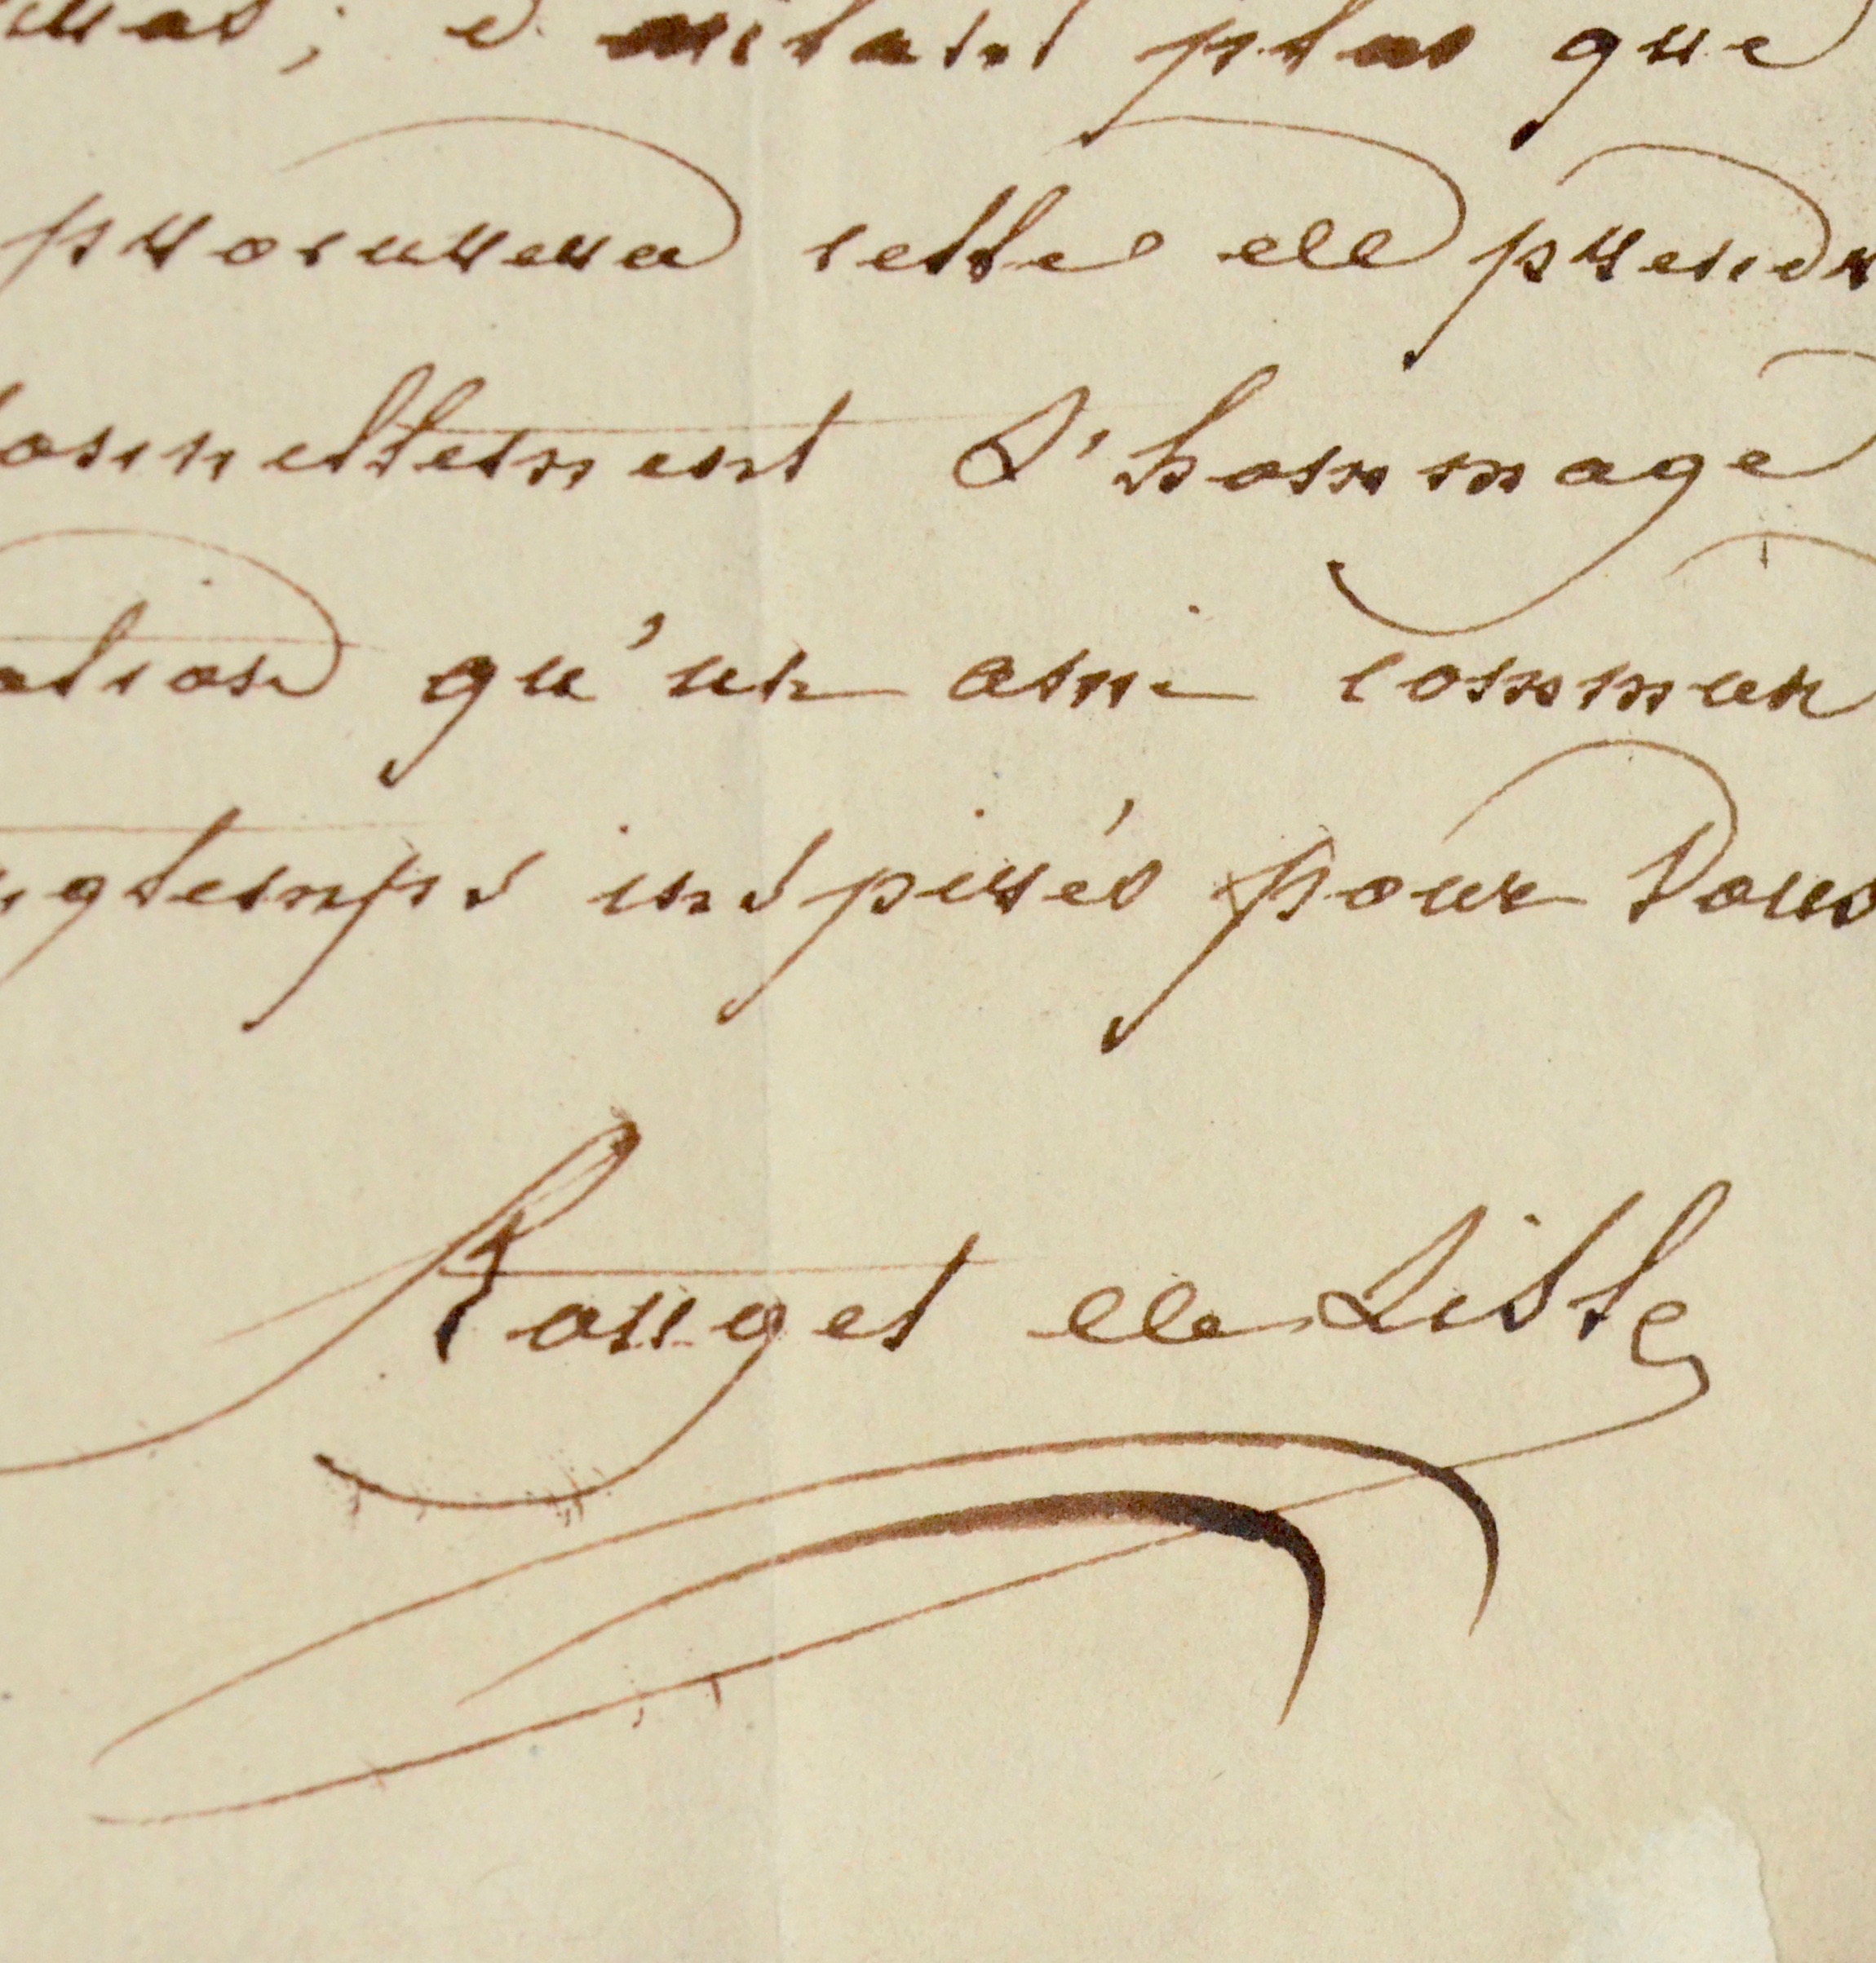 ; d'autant plus que
procurera cette de prendr
onnellement l'hommage
ation qu'un ami commun
ngtemps inspirés pour Vous
Rouget de Lisle